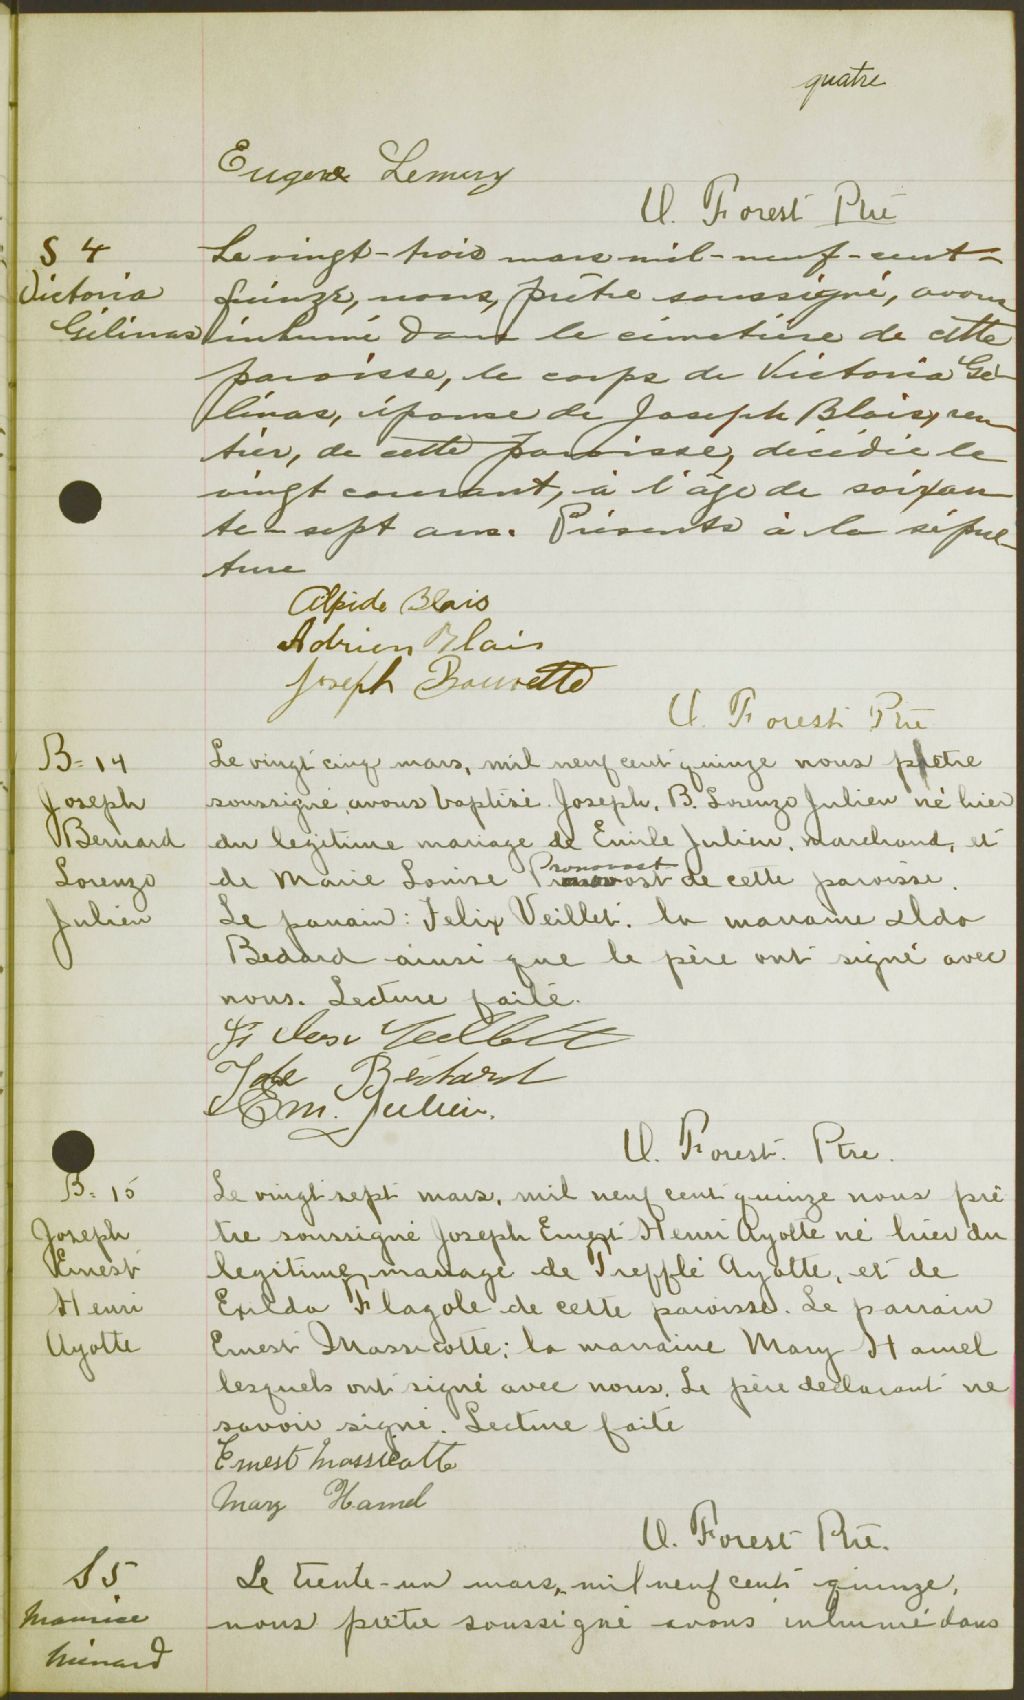 quatre
Eugene Lemery
U. Forest Ptre
S 4
Victoria
Gélinas
Le vingt-trois mars mil-neuf-cent-
quinze, nous, prêtre soussigné, avons
inhumé dans le cimetière de cette
paroisse, le corps de Victoria Gé-
linas, épouse de Joseph Blais, ren-
tier, de cette paroisse, décédée le
vingt courant, à l'âge de soixan-
te-sept ans. Présents à la sépul-
ture
Alpide Blais
Adrien Blais
Joseph Bourette
U. Forest Ptre
B= 14
Joseph
Bernard
Lorenzo
Julien
Le vingt cinq mars, mil neuf cent quinze nous prêtre
soussigné avons baptisé Joseph, B. Lorenzo Julien né hier
du legitime mariage de Emile Julien, marchand, et
de Marie Louise Pronovost de cette paroisse.
Le parrain: Felix Veillet. la marraine Ilda
Bedard ainsi que le père ont signé avec
nous. Lecture faite.
Veillette
Bédard
Em. Julien.
U. Forest. Ptre.
B= 15
Joseph
Ernest
Henri
Ayotte
Le vingt sept mars, mil neuf cent quinze nous prê
tre soussigné Joseph Ernest Henri Ayotte né hier du
legitime mariage de Trefflé Ayotte, et de
Exilda Flageole de cette paroisse. Le parrain
Ernest Massicotte; la marraine Mary Hamel
lesquels ont signé avec nous. Le père declarant ne
savoir signé. Lecture faite
Ernest Massicotte
Mary Hamel
U. Forest Ptre.
S 5
Maurice
Ménard
Le trente-un mars, mil neuf cent quinze,
nous prêtre soussigné avons inhumé dans